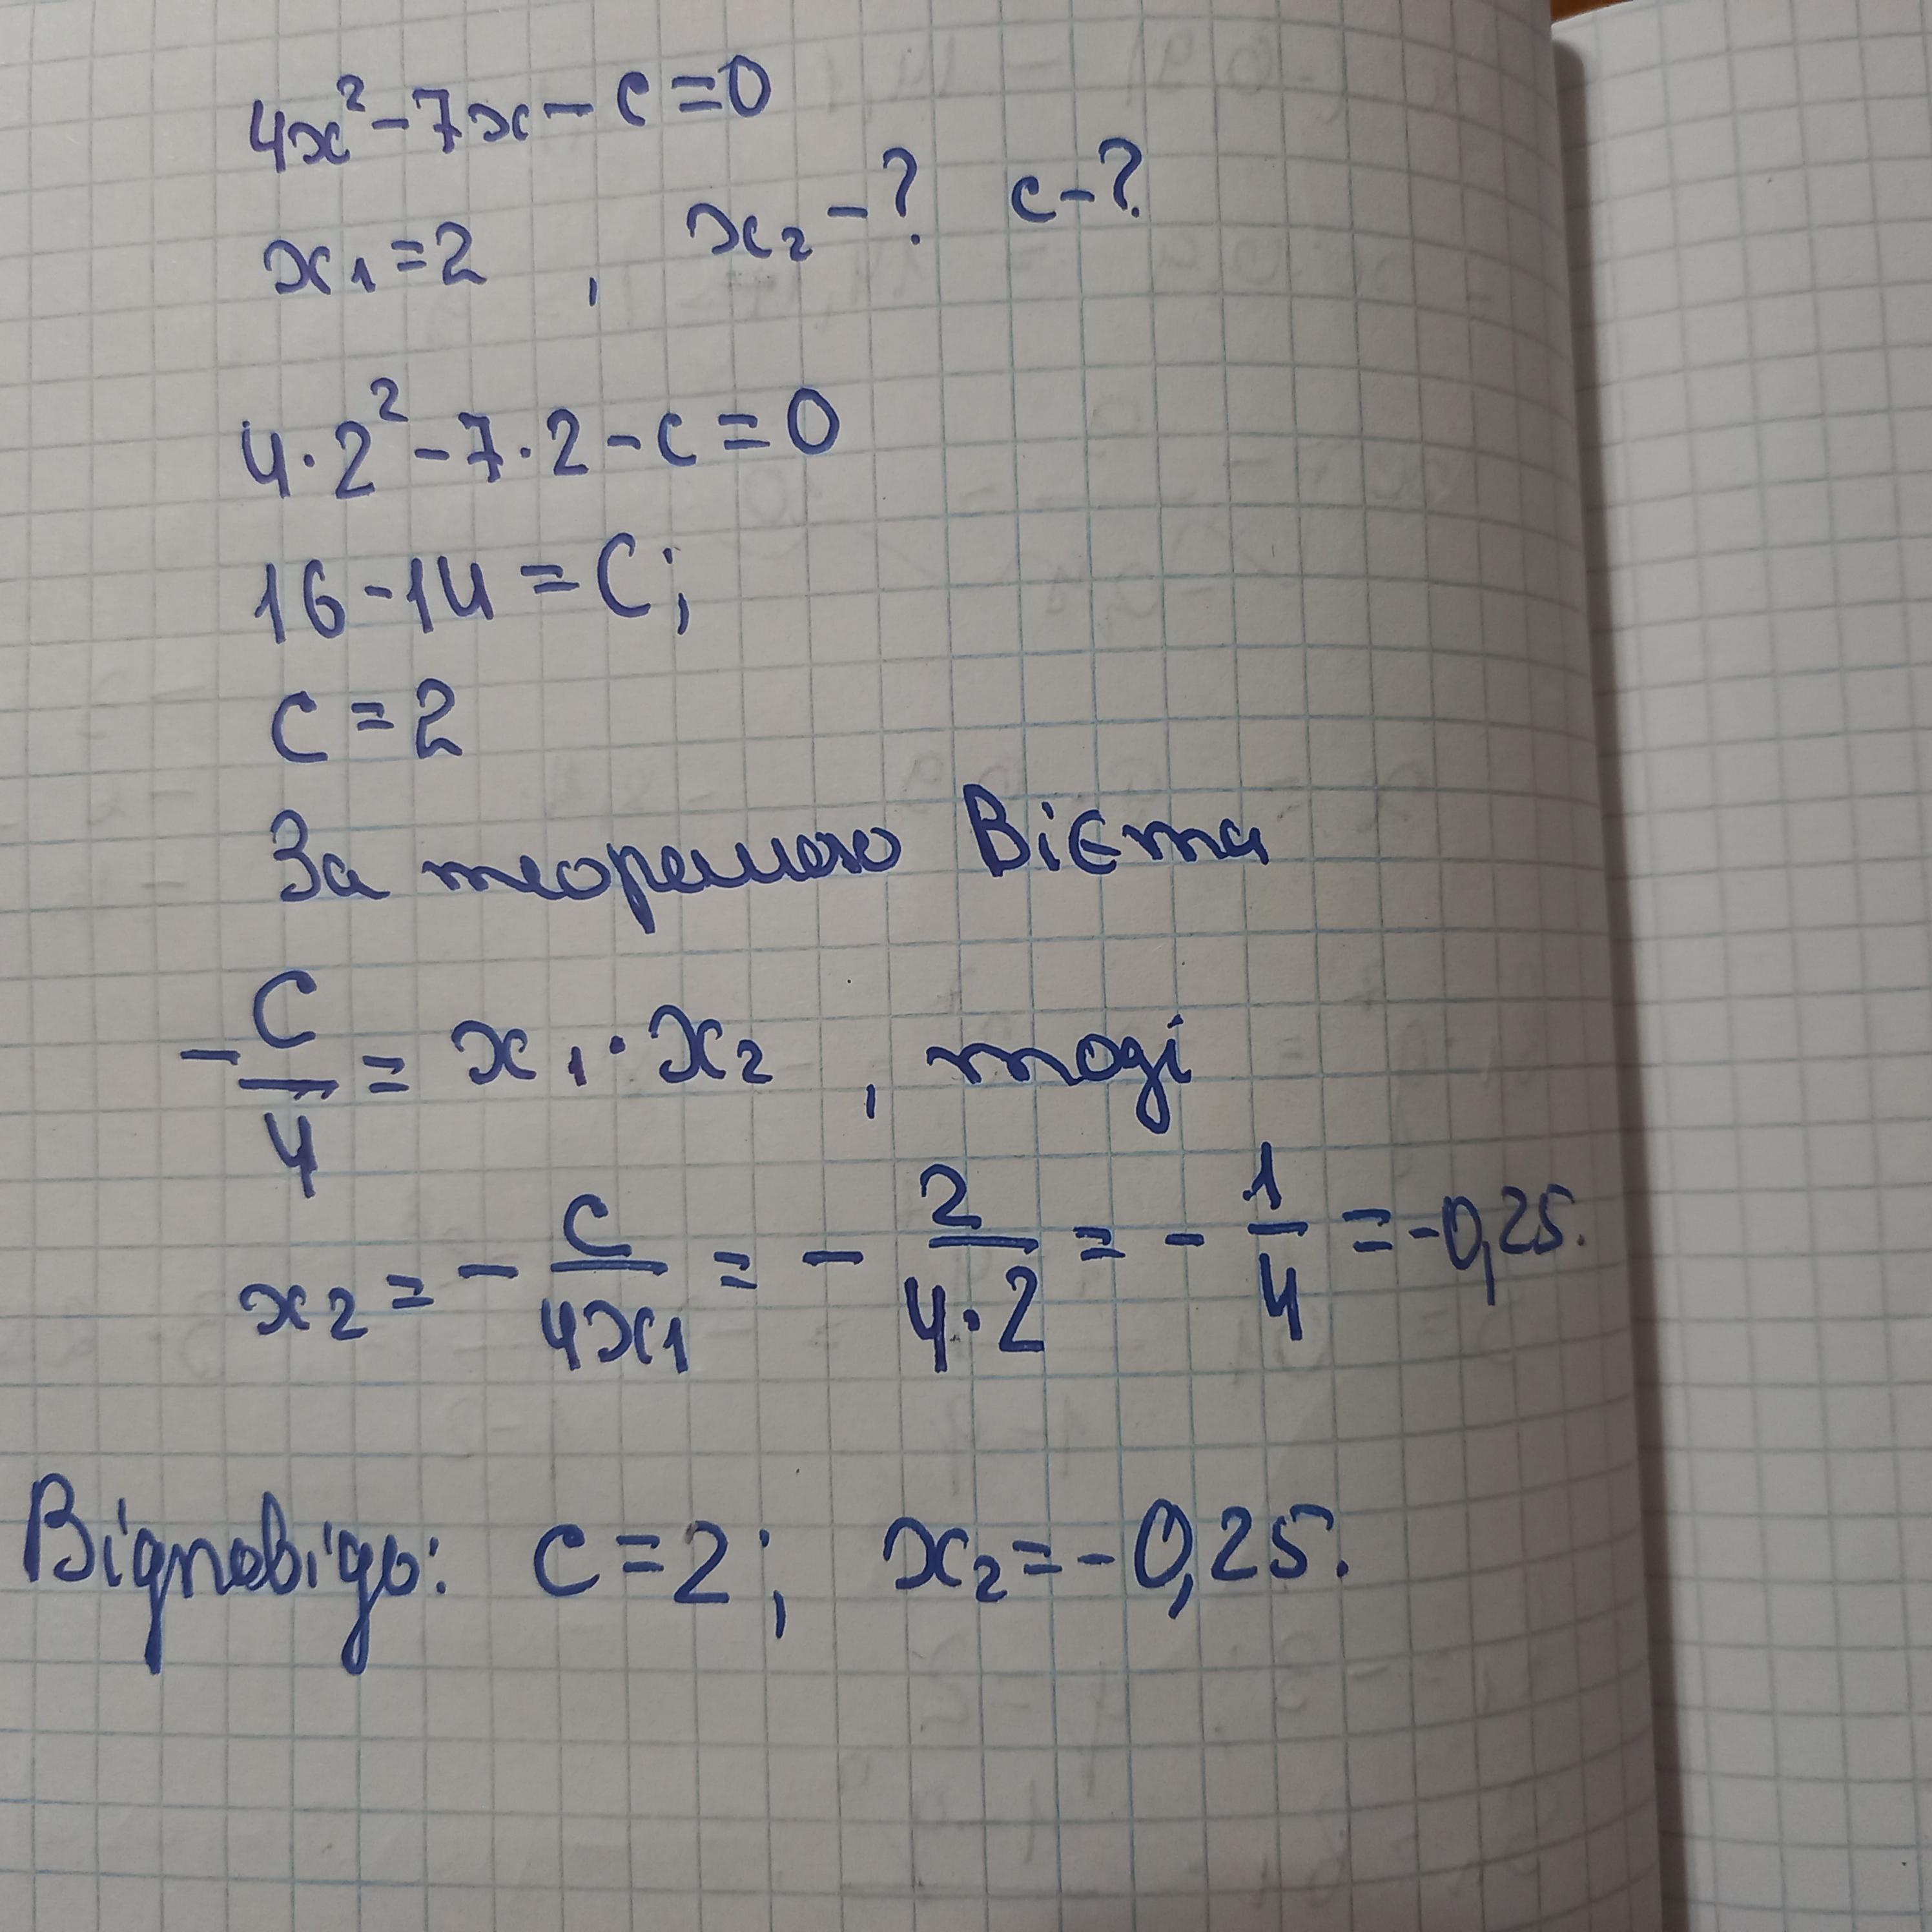 4x² - 7x - c = 0
x₁ = 2 , x₂ - ? c - ?
4 · 2² - 7 · 2 - c = 0
16 - 14 = C;
c = 2
За теоремою Вієта
- C/4 = x₁ · x₂ , тоді
x₂ = - C/4x₁ = - 2/4·2 = - 1/4 = -0,25.
Відповідь: c = 2; x₂ = -0,25.